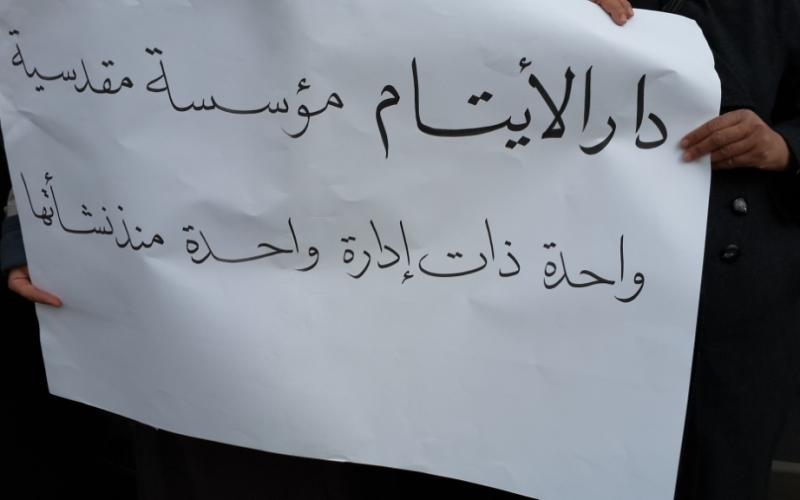 دار الأيتام مؤسسة مقدسية
واحدة ذات إدارة واحدة منذ نشأتها